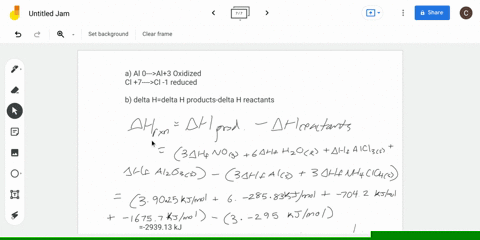 Untitled Jam
Share
C
Set background
Clear frame
a) Al 0--->Al+3 Oxidized
Cl +7---->Cl -1 reduced
b) delta H=delta H products-delta H reactants
ΔHrxn = ΔHprod - ΔHreactants
= (3ΔHf NO(g) + 6ΔHf H2O(l) + ΔHf AlCl3(s) +
ΔHf Al2O3(s)) - (3ΔHf Al(s) + 3ΔHf NH4ClO4(s))
= (3·90.25 kJ/mol + 6·-285.83 kJ/mol + -704.2 kJ/mol
+ -1675.7 kJ/mol) - (3·-295 kJ/mol)
=-2939.13 kJ